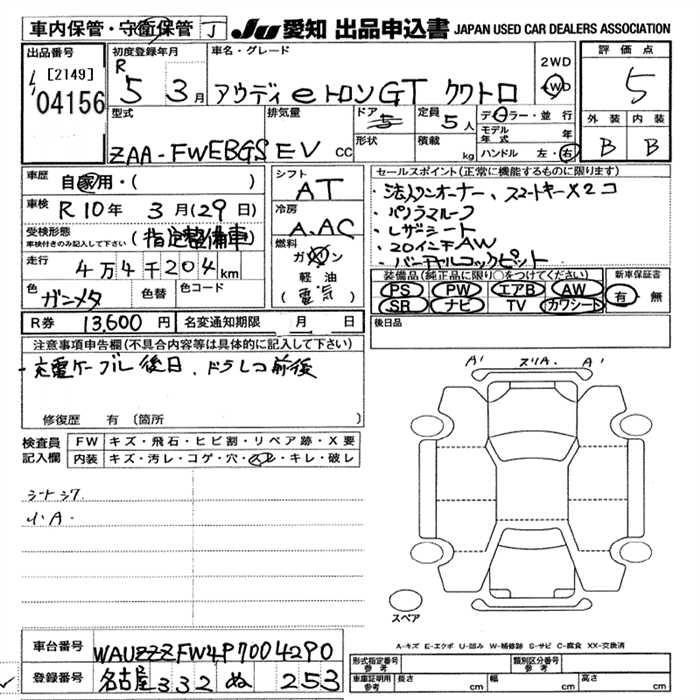 車内保管・守衛保管 丁 JU愛知 出品申込書 JAPAN USED CAR DEALERS ASSOCIATION
出品番号 [2149] 04156
初度登録年月 R5 3月
車名・グレード アウディ eトロンGT クワトロ
2WD 4WD
評価点 5
外装 内装
B B
型式 ZAA-FWEBGS
排気量 EV cc
ドア 5
形状
定員 5人
積載 kg
ディーラー・並行
モデル年式 年
ハンドル 左・右
車歴 自家用・( )
車検 R10年 3月(29日)
受検形態 車検付きのみ記入して下さい (指定整備車)
走行 4万4千204km
色 ガンメタ 色替 色コード
シフト AT
冷房 A.AC
燃料 ガソリン
軽油
(電気)
セールスポイント(正常に機能するものに限ります)
・法人ワンオーナー、スマートキー×2コ
・パノラマルーフ
・レザーシート
・20インチAW
・バーチャルコックピット
装備品(純正品に限り○をつけてください)
PS PW エアB AW
SR ナビ TV カワシート
新車保証書
有・無
R券 13,600円 名変通知期限 月 日
後日品
注意事項申告欄(不具合内容等は具体的に記入して下さい)
・充電ケーブル後日、ドラレコ前後
修復歴 有 〔箇所 〕
検査員記入欄
FW キズ・飛石・ヒビ割・リペア跡・X要
内装 キズ・汚レ・コゲ・穴・スレ・キレ・破レ
シートシワ
小A.
A' スリA. A'
スペア
A-キズ E-エクボ U-凹み W-補修跡 S-サビ C-腐食 XX-交換済
車台番号 WAUZZZFW4P7004290
登録番号 名古屋 332 ぬ 253
形式指定番号 参考
類別区分番号 参考
車庫証明用 参考 長さ cm 幅 cm 高さ cm